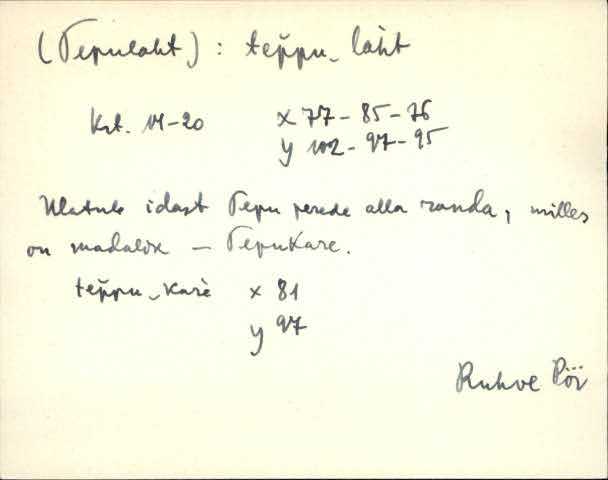 (Tepulaht) : tep̌pu‿laht
Krt. VI-20 x 77-85-76
y 102-97-95
Ulatub idast Tepu perede alla randa, milles
on madalik — Tepukare.
tep̌pu‿karè x 81
y 97
Ruhve Pöi